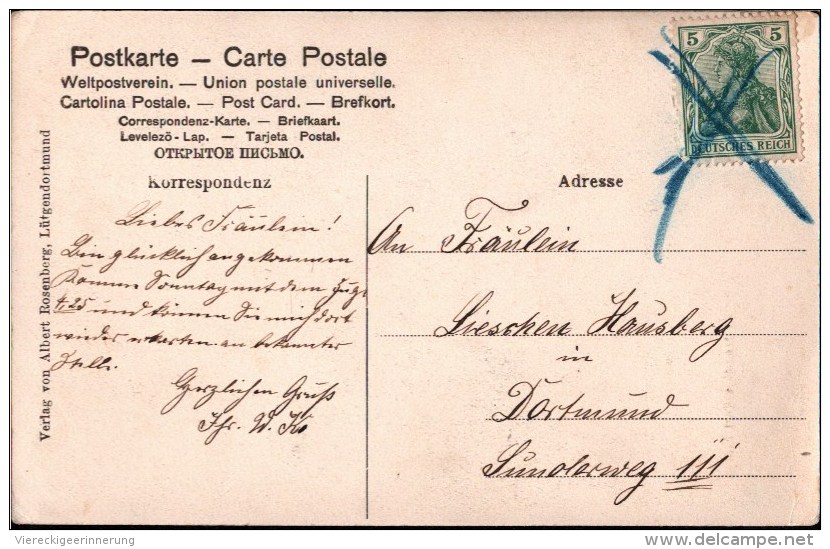 Postkarte — Carte Postale
Weltpostverein. — Union postale universelle.
Cartolina Postale. — Post Card. — Brefkort.
Correspondenz-Karte. — Briefkaart.
Levelező-Lap. — Tarjeta Postal.
ОТКРЫТОЕ ПИСЬМО.
Korrespondenz
Liebes Fräulein!
Bin glücklich angekommen
Komme Sonntag mit dem Zuge
4,25 und können Sie mich dort
wieder erwarten an bekannter
Stelle.
Herzlichen Gruß
Ihr. W.
Verlag von Albert Rosenberg, Lütgendortmund
5 5
DEUTSCHES REICH
Adresse
An Fräulein
Lieschen Hausberg
in
Dortmund
Sunderweg 111
Viereckigeerinnerung
delcampe.net